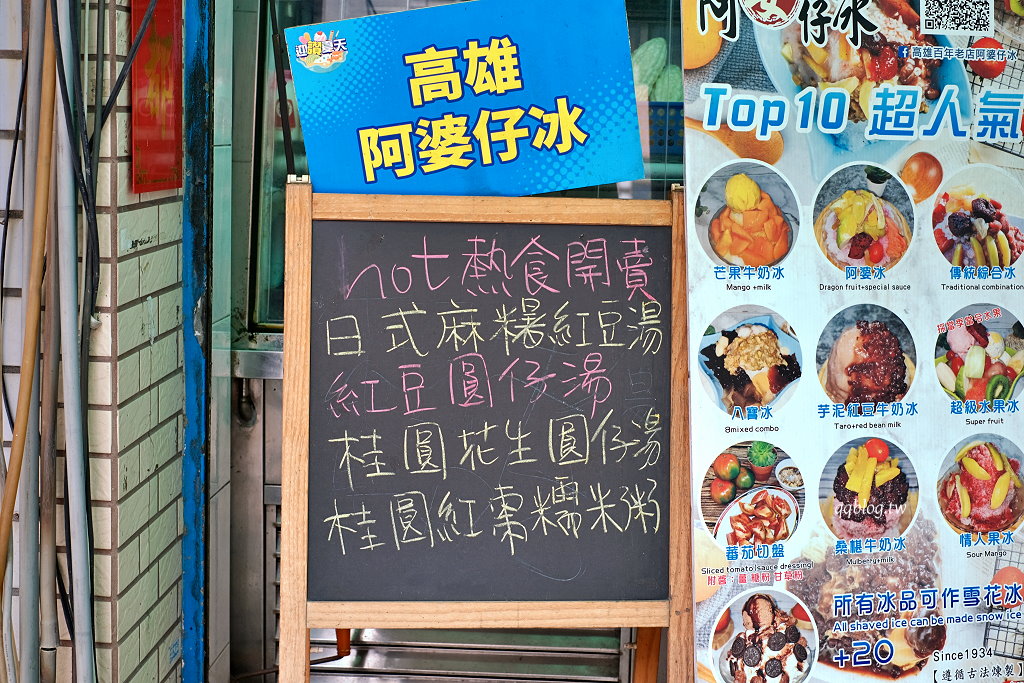 迎蹦夏天
高雄
阿婆仔冰
hot熱食開賣
日式麻糬紅豆湯
紅豆圓仔湯
桂圓花生圓仔湯
桂圓紅棗糯米粥
阿婆仔冰
高雄百年老店阿婆仔冰
Top 10 超人氣
芒果牛奶冰
Mango +milk
阿婆冰
Dragon fruit+special sauce
傳統綜合冰
Traditional combination
八寶冰
8mixed combo
芋泥紅豆牛奶冰
Taro+red bean milk
超級水果冰
Super fruit
蕃茄切盤
Sliced tomato (sauce dressing)
附醬:薑.糖粉.甘草粉
桑椹牛奶冰
Mulberry+milk
情人果冰
Sour Mango
qqblog.tw
所有冰品可作雪花冰
All shaved ice can be made snow ice
+20
Since1934
【遵循古法煉製】